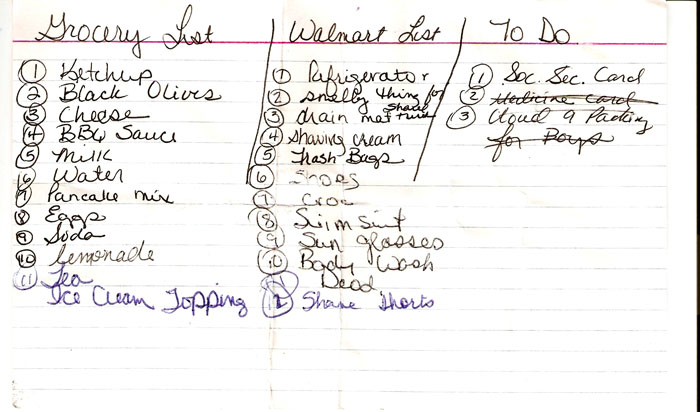 Grocery List
① Ketchup
② Black Olives
③ Cheese
④ BBQ Sauce
⑤ Milk
⑥ Water
⑦ Pancake mix
⑧ Eggs
⑨ Soda
⑩ Lemonade
⑪ Tea
Ice Cream Topping
Walmart List
① Refrigerator
② smelly thing for
③ drain mat
④ shaving cream
⑤ trash Bags
⑥ Shoes
⑦ Croc
⑧ Swim suit
⑨ Sun glasses
⑩ Body Wash
⑪ Dead
⑫ Shane Shorts
To Do
① Soc. Sec. Card
② Medicine Card
③ Cloud 9 Packing
for Boys